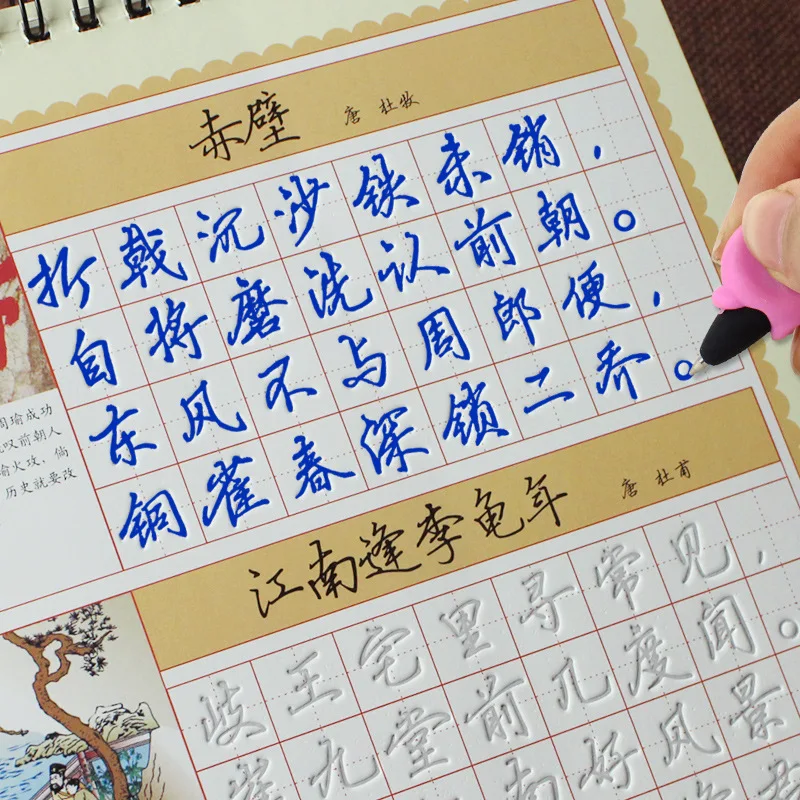 赤壁 唐 杜牧
折戟沉沙铁未销，
自将磨洗认前朝。
东风不与周郎便，
铜雀春深锁二乔。
周瑜成功
叹前朝人
瑜火攻，倘
历史就要改
江南逢李龟年 唐 杜甫
岐王宅里寻常见，
崔九堂前几度闻。
南好风景